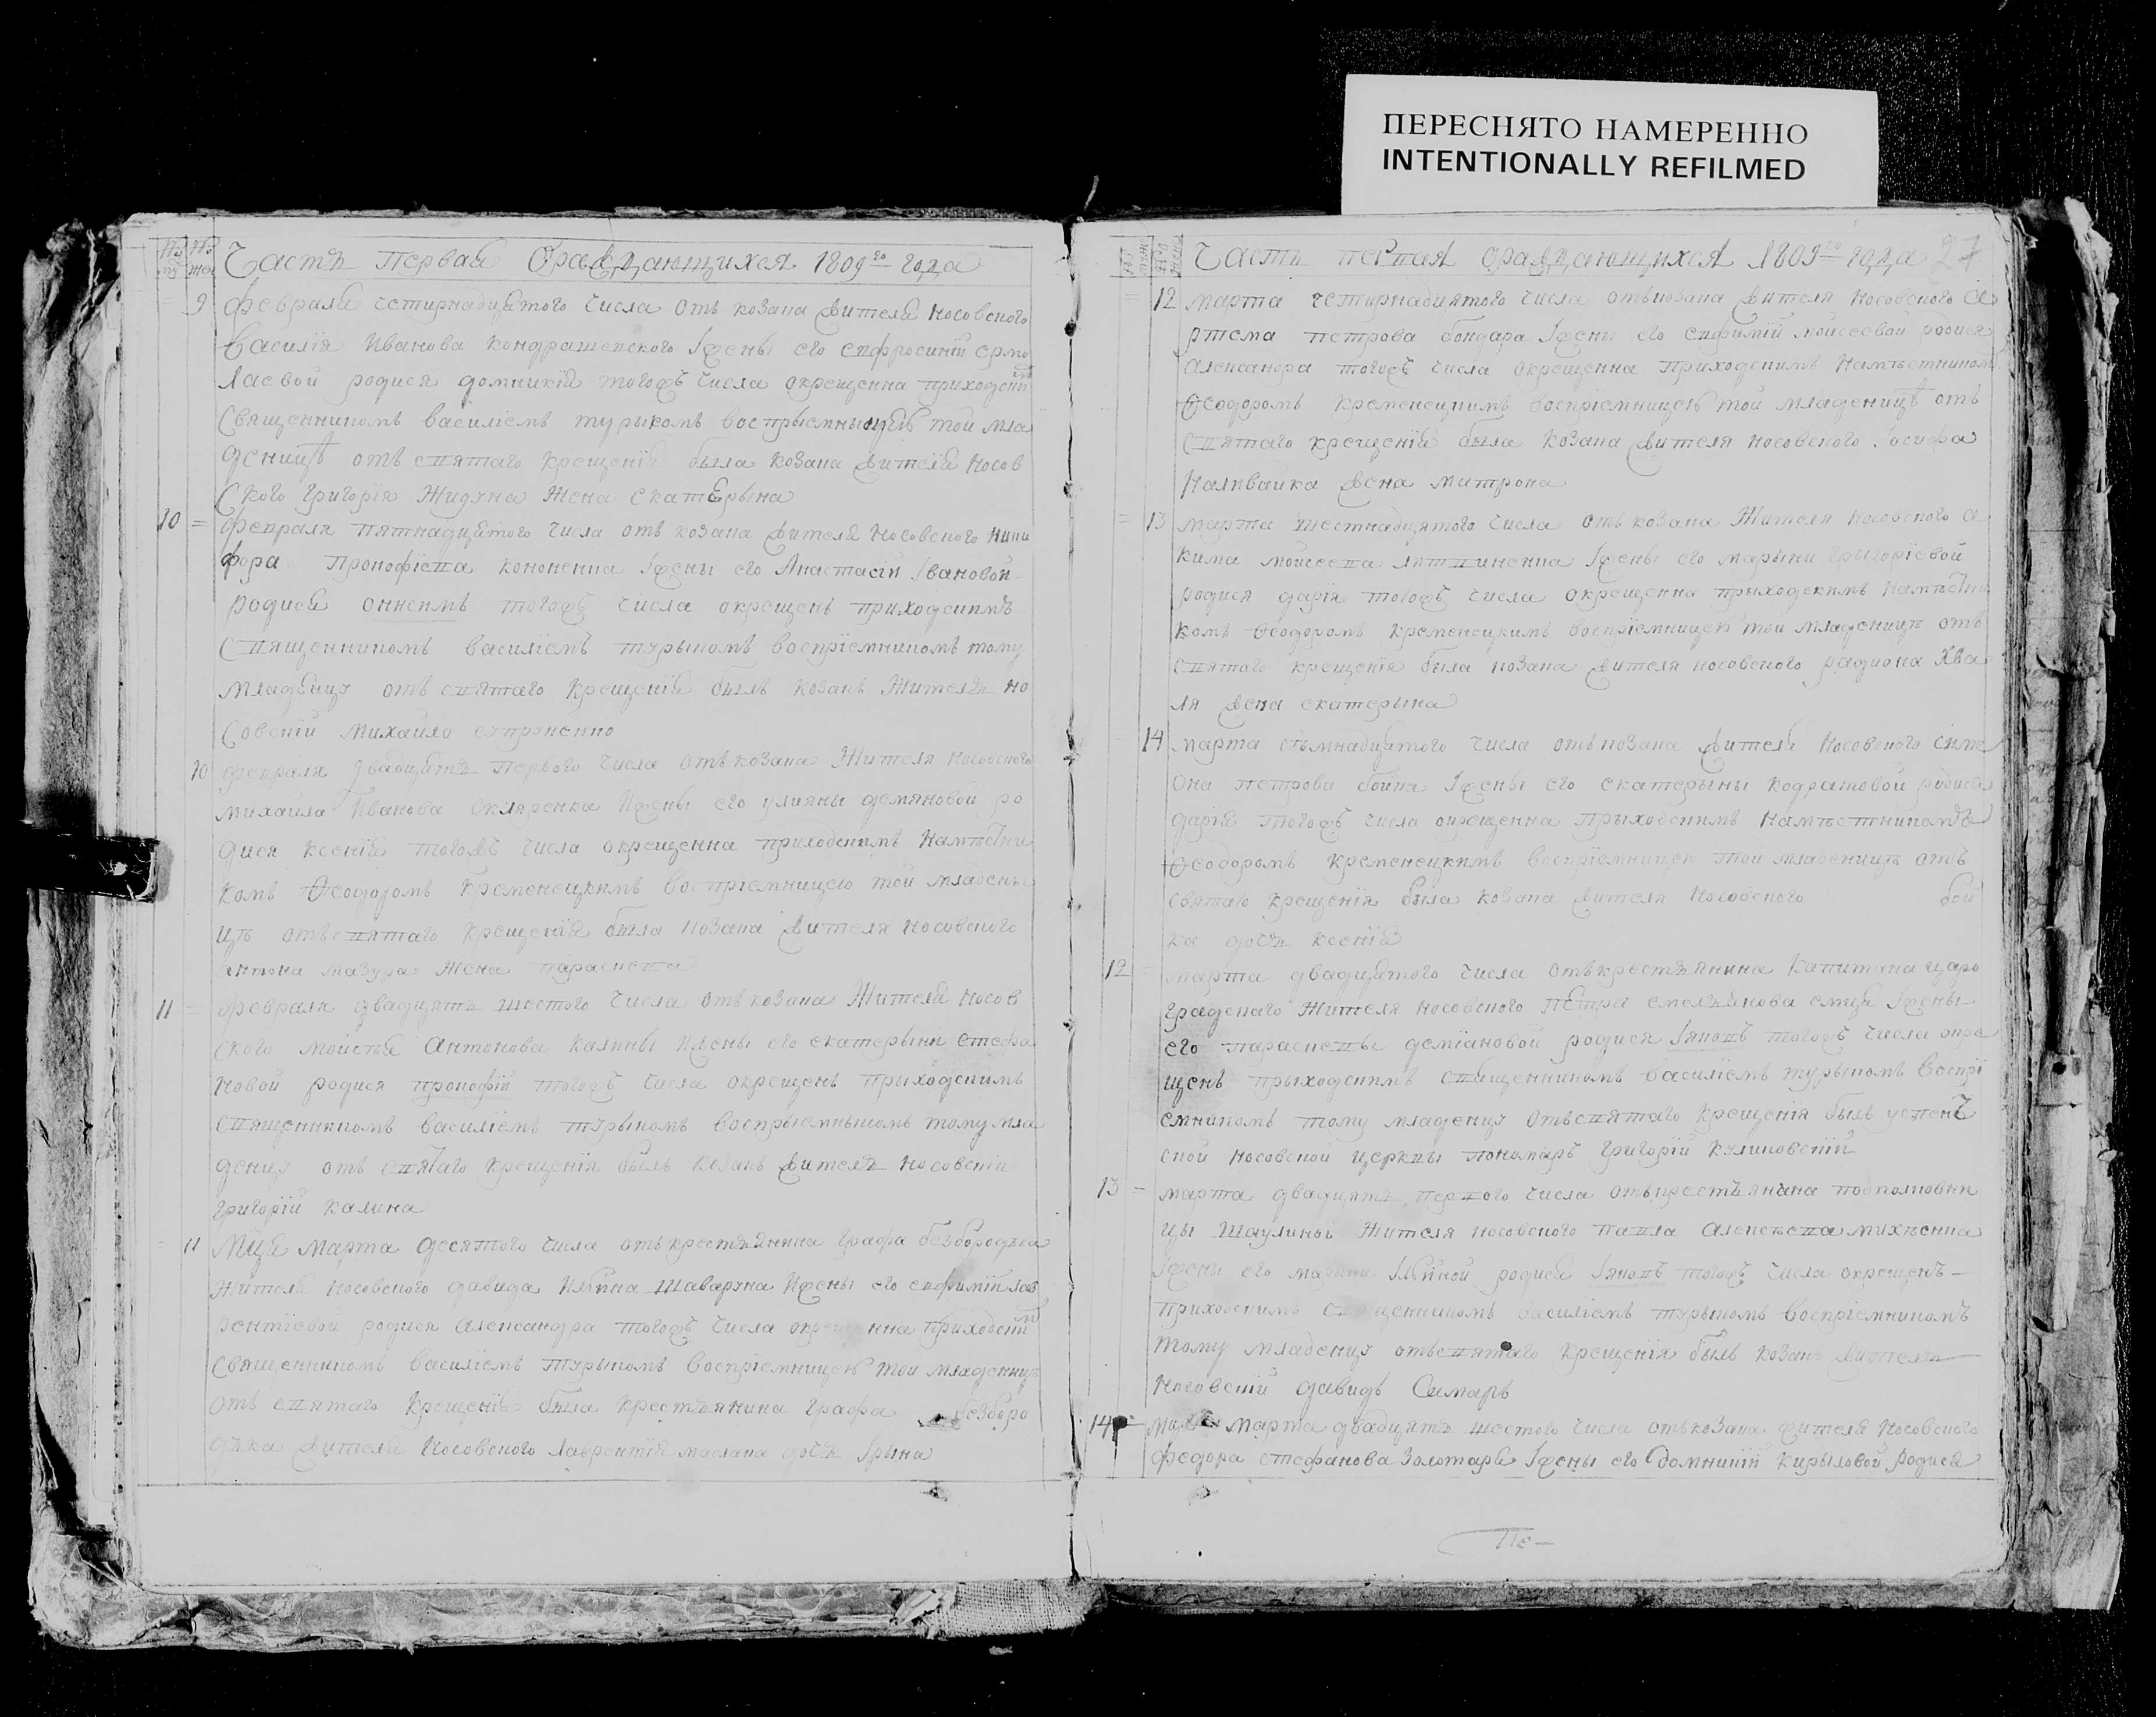 ПЕРЕСНЯТО НАМЕРЕННО
INTENTIONALLY REFILMED
Часть Первая Ораждающихся 1809го года
9 февраля четирнадцятого числа отъ козака жителя носовского
Василія Иванова Кондрашевского Іжены его евфросиніи ермо
лаевой родися домникія тогожъ числа окрещенна приходским
Священникомъ василіемъ турыкомъ воспрыемныцею той мла
деницѣ отъ святаго крещенія была козака жителя Носов
Ского григорія Жидуна Жена екатерына
10 февраля пятнадцятого числа отъ козака жителя Носовского Ники
фора Прокофіева кононенка Іжены его Анастасіи Івановой
родися онисимъ тогожъ числа окрещенъ приходскимъ
Священникомъ василіемъ турыкомъ воспріемникомъ тому
младенцу отъ святаго крещенія былъ козакъ Жытель но
Совскій Михайло супруненко
10 февраля двадцять первого числа отъ козака Жителя Носовского
михайла Иванова Скляренка Ижены его улияны демяновой ро
дися ксенія тогожъ числа окрещенна приходскимъ Намѣстни
комъ Ѳеодоромъ кременецкимъ воспріемницею той младены
цѣ отъ святаго крещенія была козака жителя носовского
антона мазура Жена параскева
11 февраля двадцять шостого числа отъ козака Жителя Носов
ского Моисея Антонова Калины Ижены его екатерыни стефа
новой родися прокофій тогожъ числа окрещенъ прыходскимъ
священникомъ василіемъ турыкомъ воспрыемныкомъ тому мла
денцу отъ святаго крещенія былъ козакъ жытель носовскій
григорій калина
11 Мця марта десятого числа отъ крестьянина графа безбородька
жителя носовского давида Илѣина Шаваруна Ижены его евфиміи лав
рентіевой родися Александра тогожъ числа окрещенна приходским
священникомъ василіемъ турыкомъ воспріемницею той младеницѣ
отъ святаго крещенія была крестьянина графа безборо
дька жителя Носовского Лаврентія маслака дочь Ірына
Часть первая ораждающихся 1809го года 27
12 марта четирнадцятого числа отъ козака жителя носовского а
ртема петрова бондара Іжены его евфиміи мойсеевой родися
александра тогожъ числа окрещенна приходскимъ Намѣстником
Ѳеодоромъ кременецкимъ воспріемницею той младеницѣ отъ
святаго крещенія была козака жителя носовского Іосифа
Наливайка жена митрона
13 марта шестнадцятого числа отъ козака Жителя носовского а
кима мойсеева литвиненка Іжены его марыни григоріевой
родися дарія тогожъ числа окрещенна прыходскимъ Намѣстни
комъ Ѳеодоромъ кременецкимъ воспріемницею той младеницѣ отъ
святаго крещенія была козака жителя носовского радиона Хва
ля жена екатерына
14 марта сѣмнадцятого числа отъ козака жителя Носовского симе
она петрова бойка Іжены его екатерыны кодратовой родися
дарія тогожъ числа окрещенна прыходскимъ Намѣстникомъ
Ѳеодоромъ кременецкимъ воспріемницею той младеницѣ отъ
святаго крещенія была козака жителя Носовского бой
ка дочь ксенія
12 марта двадцятого числа отъ крестьянина капитана царо
градскаго Жителя носовского Петра емельянова Іжены
его параскевы деміановой родися Іяковъ тогожъ числа окре
щенъ прыходскимъ священникомъ василіемъ турыкомъ воспрі
емникомъ тому младенцу отъ святаго крещенія былъ успен
ской носовской церквы пономаръ григорій куликовскій
13 марта двадцять первого числа отъ крестьянина подполковни
цы Шаулиной Жителя носовского павла алексѣева михѣенка
Іжены его марини родися Іяковъ тогожъ числа окрещенъ
приходскимъ священникомъ василіемъ турыкомъ воспріемникомъ
тому младенцу отъ святаго крещенія былъ козакъ жытель
Носовскій давидъ Симаръ
14 марта двадцять шостого числа отъ козака жителя Носовского
федора стефанова Золотаря Іжены его домникіи кирыловой родися